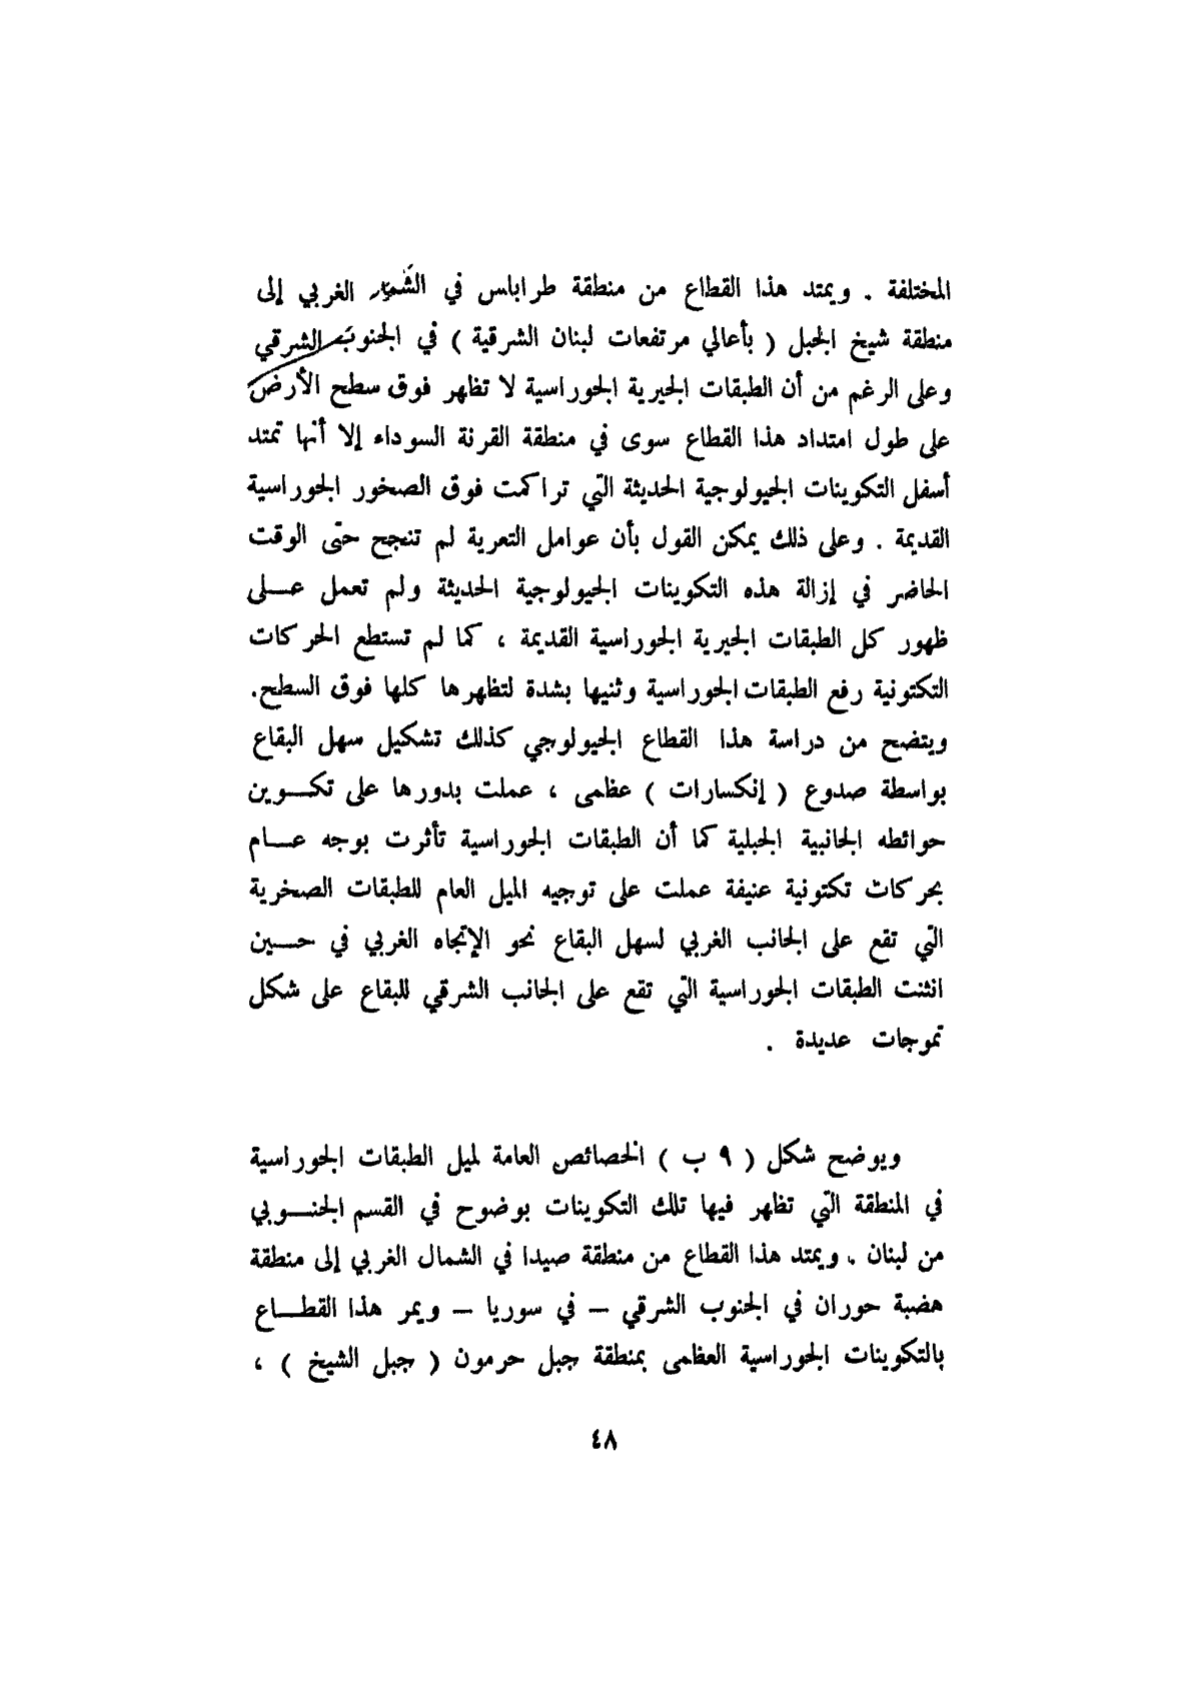 المختلفة . ويمتد هذا القطاع من منطقة طرابلس في الغربي إلى
منطقة شيخ الجبل ( بأعالي مرتفعات لبنان الشرقية ) في الجنوب الشرقي
وعلى الرغم من أن الطبقات الجيرية الجوراسية لا تظهر فوق سطح الأرض
على طول امتداد هذا القطاع سوى في منطقة القرنة السوداء إلا أنها تمتد
أسفل التكوينات الجيولوجية الحديثة التي تراكمت فوق الصخور الجوراسية
القديمة . وعلى ذلك يمكن القول بأن عوامل التعرية لم تنجح حتى الوقت
الحاضر في إزالة هذه التكوينات الجيولوجية الحديثة ولم تعمل عـــلى
ظهور كل الطبقات الجيرية الجوراسية القديمة ، كما لم تستطع الحركات
التكتونية رفع الطبقات الجوراسية وثنيها بشدة لتظهرها كلها فوق السطح.
ويتضح من دراسة هذا القطاع الجيولوجي كذلك تشكيل سهل البقاع
بواسطة صدوع ( إنكسارات ) عظمى ، عملت بدورها على تكـــوين
حوائطه الجانبية الجبلية كما أن الطبقات الجوراسية تأثرت بوجه عـــام
بحركات تكتونية عنيفة عملت على توجيه الميل العام للطبقات الصخرية
التي تقع على الجانب الغربي لسهل البقاع نحو الإتجاه الغربي في حـــين
انثنت الطبقات الجوراسية التي تقع على الجانب الشرقي للبقاع على شكل
تموجات عديدة .
ويوضح شكل ( ٩ ب ) الخصائص العامة لميل الطبقات الجوراسية
في المنطقة التي تظهر فيها تلك التكوينات بوضوح في القسم الجنـــوبي
من لبنان . ويمتد هذا القطاع من منطقة صيدا في الشمال الغربي إلى منطقة
هضبة حوران في الجنوب الشرقي – في سوريا – ويمر هذا القطـــاع
بالتكوينات الجوراسية العظمى بمنطقة جبل حرمون ( جبل الشيخ ) ،
٤٨